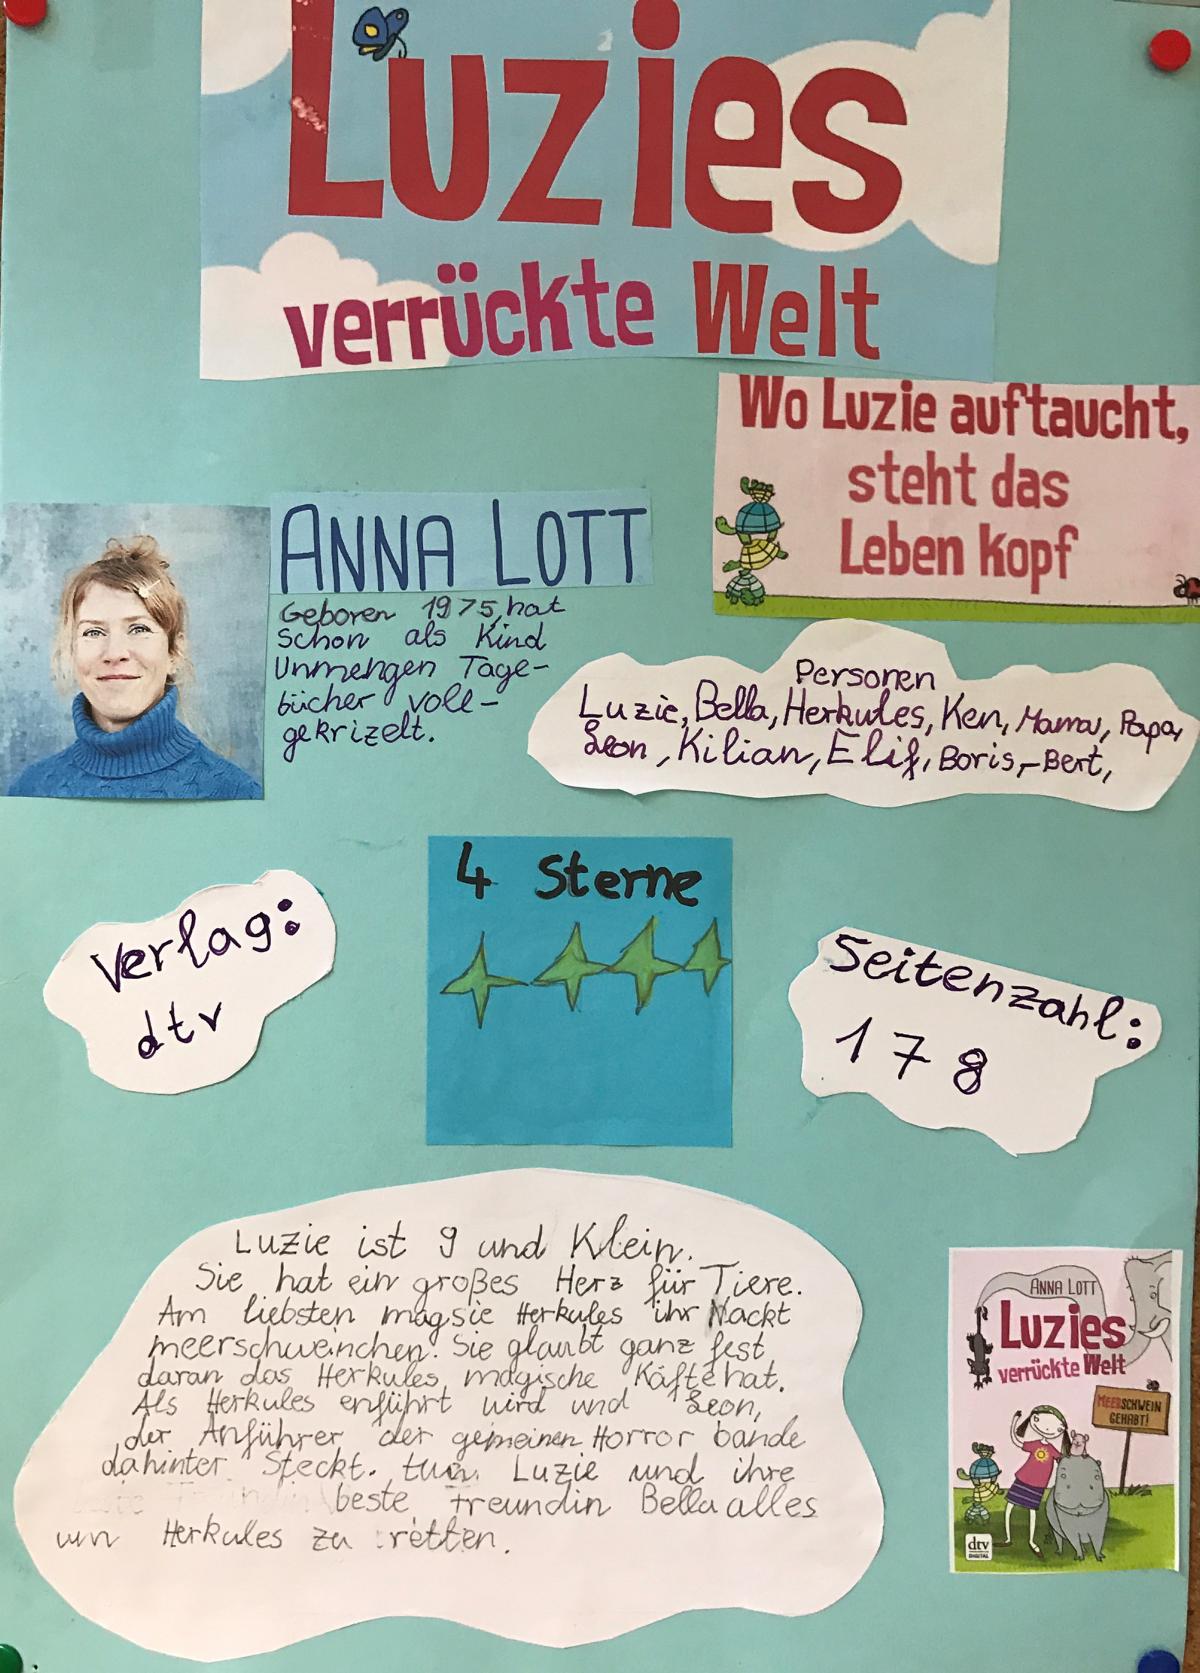 Luzies
verrückte Welt
Wo Luzie auftaucht,
steht das
Leben Kopf
ANNA LOTT
Geboren 1975, hat
Schon als Kind
Unmengen Tage-
bücher voll-
gekrizelt.
Personen
Luzie, Bella, Herkules, Ken, Mama, Papa,
Leon, Kilian, Elif, Boris,-Bert,
4 Sterne
Verlag:
dtv
Seitenzahl:
178
Luzie ist 9 und Klein.
Sie hat ein großes Herz für Tiere.
Am liebsten mag sie Herkules ihr Nackt
meerschweinchen. Sie glaubt ganz fest
daran das Herkules magische Käfte hat.
Als Herkules enführt wird und Leon,
der Anführer der gemeinen Horror bande
dahinter Steckt. tun Luzie und ihre
beste Freundin Bella alles
um Herkules zu retten.
ANNA LOTT
Luzies
verrückte Welt
MEERSCHWEIN
GEHABT!
dtv
DIGITAL